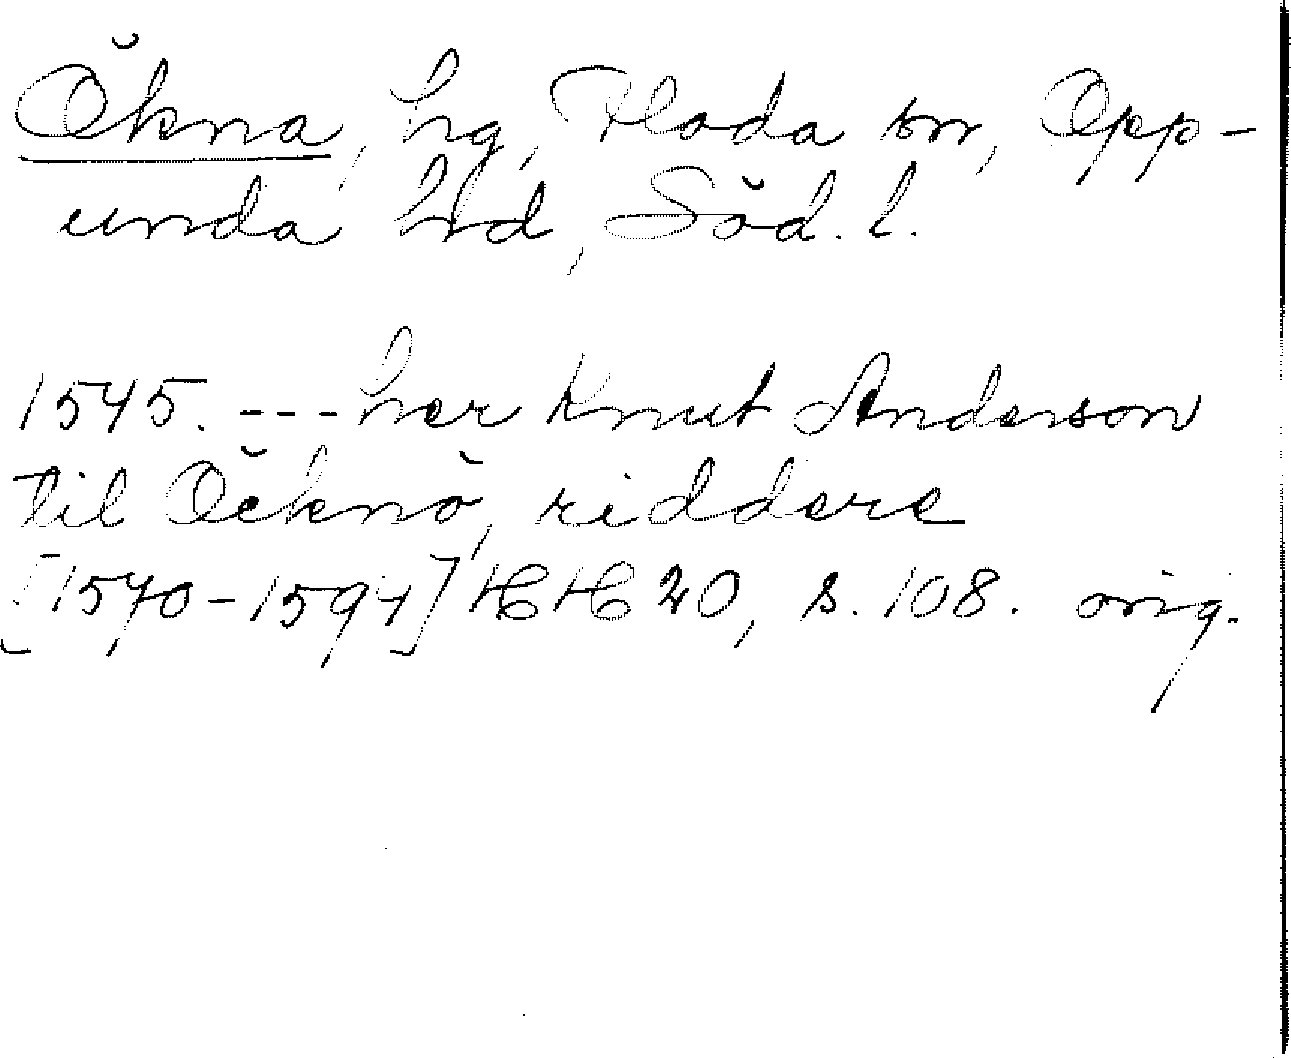 Ökna, hg, Floda sn, Opp-
unda hd, Söd. l.
1545. --- her Knut Anderson
til Öeknö, riddere
[1570-1594] HH 20, s. 108. orig.